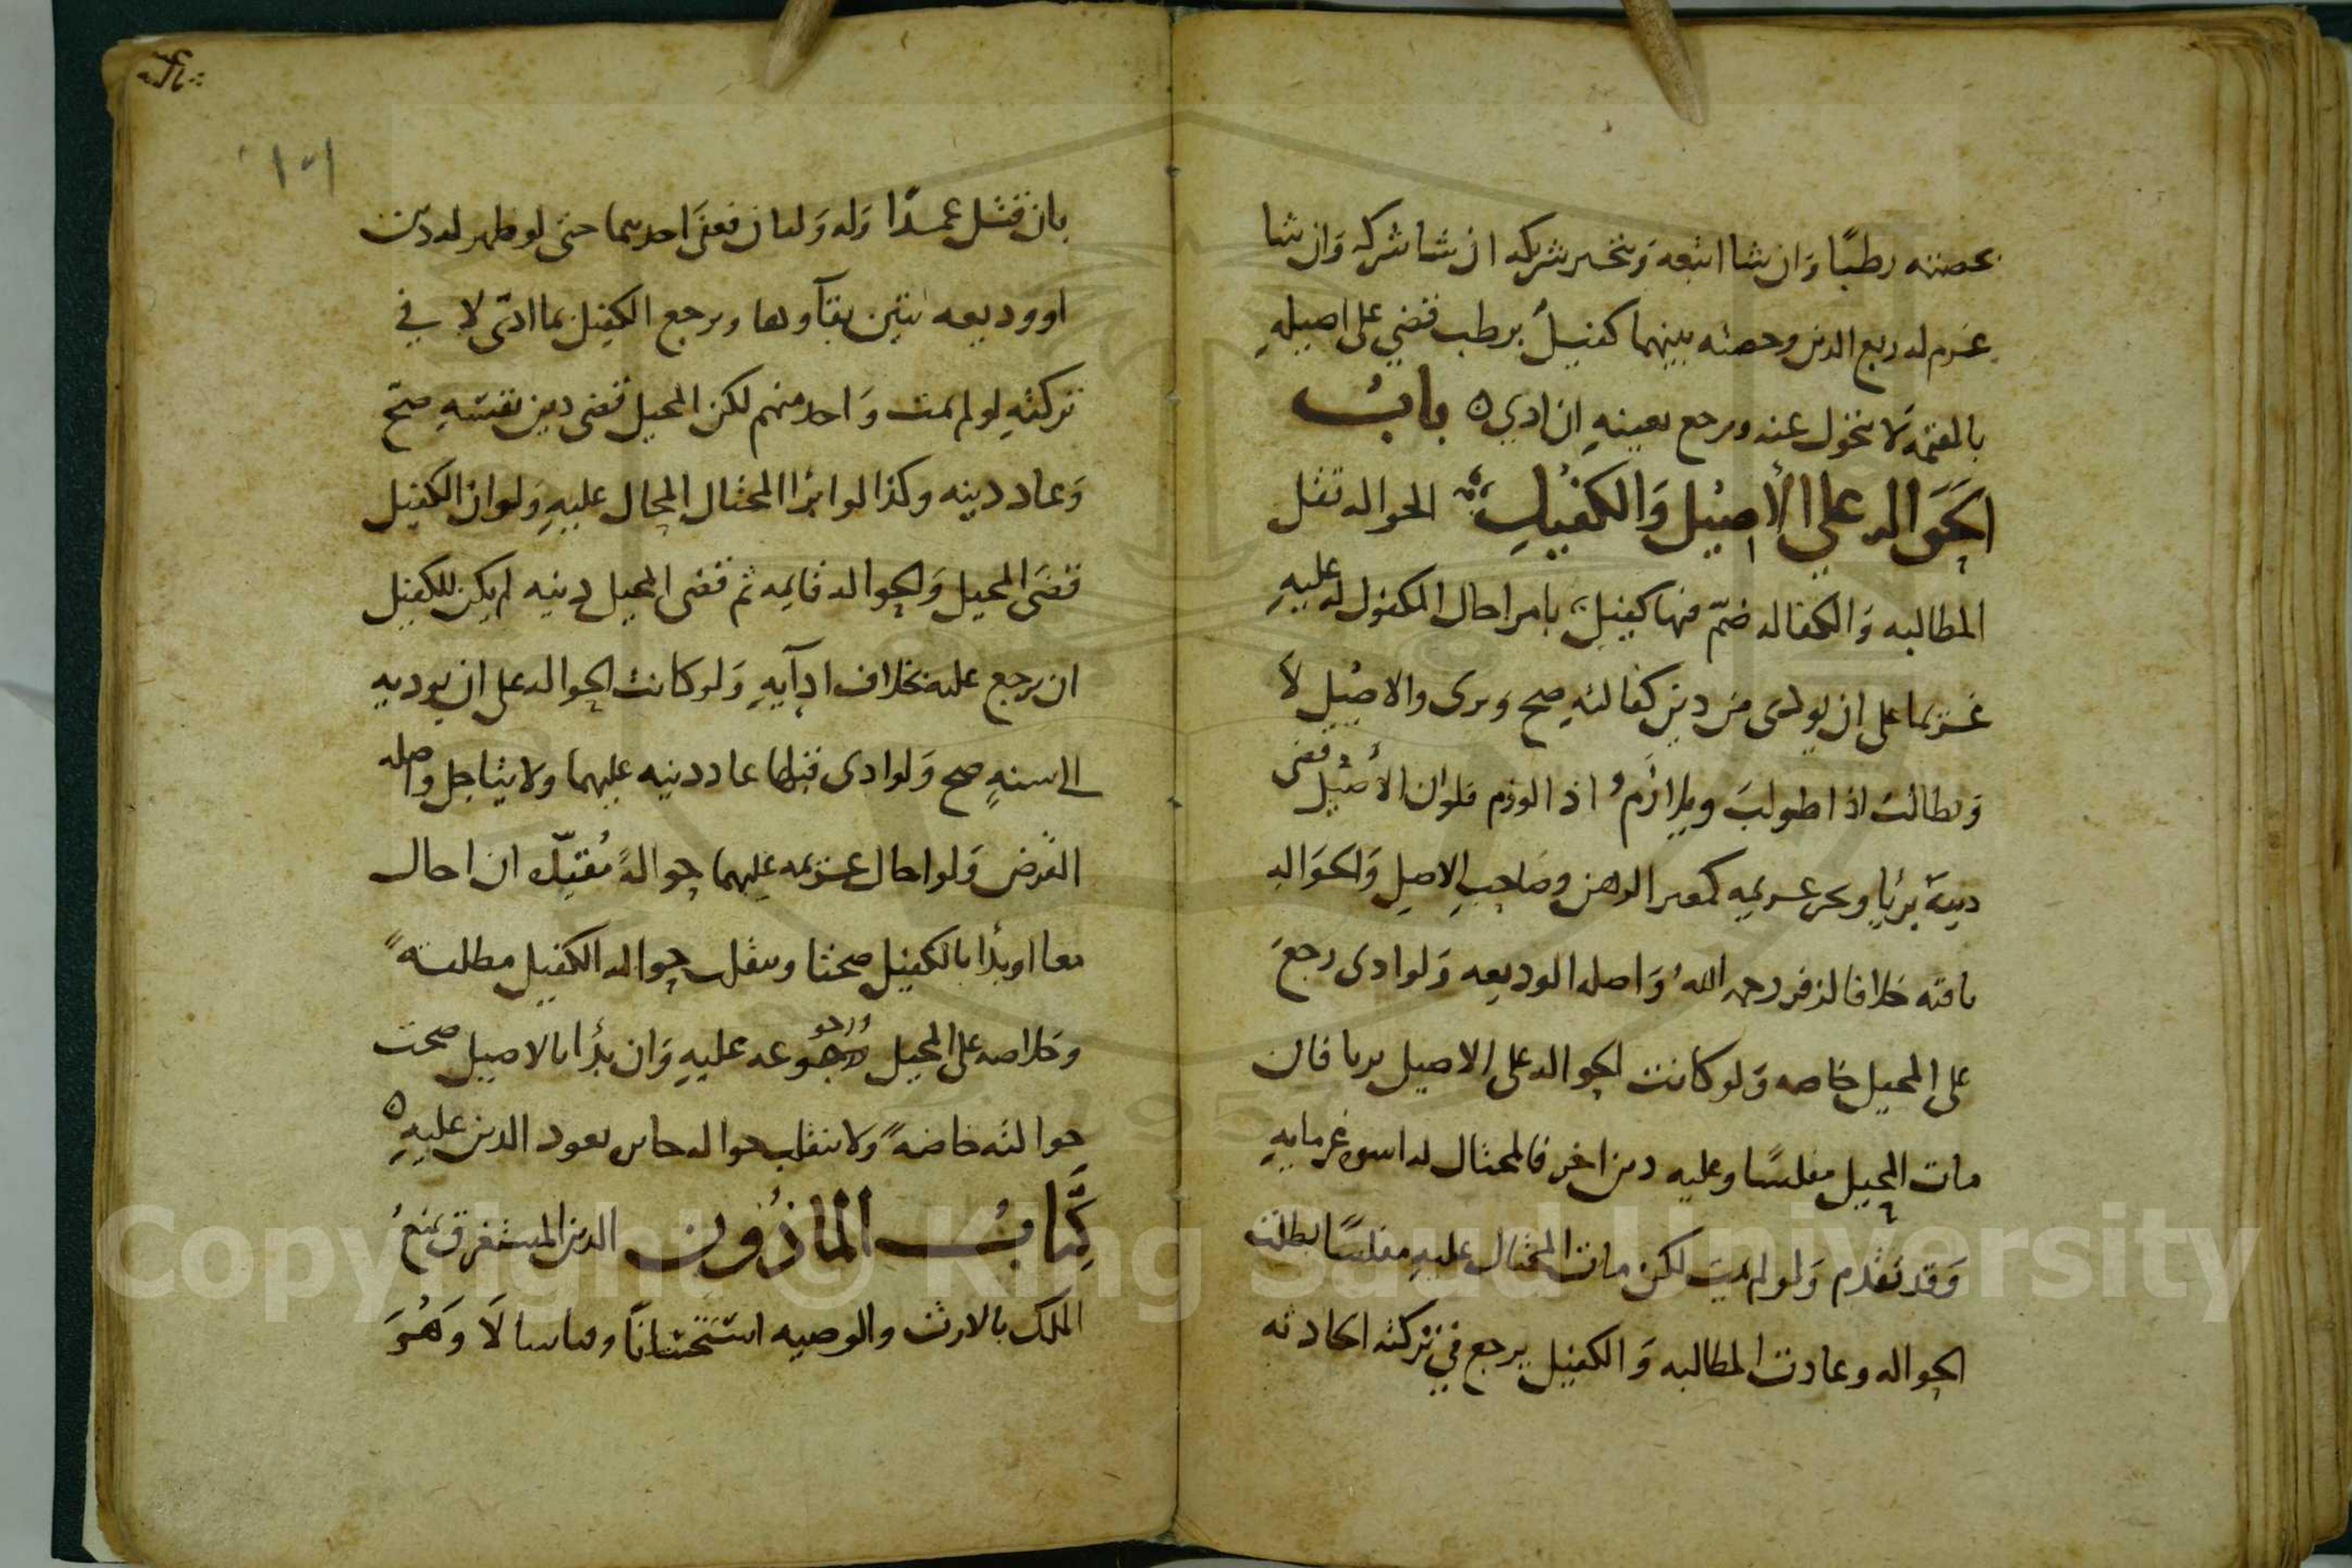 بحصته رطبًا وَان شا اتبعه وَيتخير شريكه ان شا شركه وَان شا
غرم له ربع الدين وحصته بينهما كفيلٌ برطب قضي على اصيلهِ
بالقيمة لا يتحول عنه ويرجع بعينهِ ان ادي ه بابُ
الحَوَاله علي الأصِيْل وَالكفيْلِ الحواله نقل
المطالبه وَالكفاله ضمّ فيها كفيل بامر احال المكفول له عليهِ
غريما على ان يودى من دين كفالتهِ صح وبرى والاصِيْل لاَ
وَيطالَبُ اذا طولبَ ويلازَمُ اذا لوزم فلوان الأصْيل قضى
دينهَ برئا ويخير غريمه كمعير الرهن وصَاحِبِ الاصل وَالحوَاله
باقيه خلافا لزفر رحمه اللهُ وَاصله الوديعه وَلو ادى رجعَ
على المحيل خاصه وَلو كانت الحواله على الاصيل بريا فان
مات المحيل مفلسًا وعليه دين اخر فالمحتال له اسوه غرمايهِ
وَقد تقدم وَلو لم يمت لكن مات المحتال عليهِ مفلسًا بطلت
الحواله وعادت المطالبه وَالكفيل يرجع في تركته الحادثه
١٥١
بان قتل عمدًا وَله وَليان فعفَى احدهما حتى لو ظهر له دين
او وديعه تبين بقآوها ويرجع الكفيل بما ادّى لا في
تركتهِ لو لم يمت وَاحد منهم لكن المحيل قضى دين نفسهِ صح
وَعاد دينه وكذا لو ابرا المحتال المحال عليهِ وَلو ان الكفيل
قضَى المحيل وَالحواله قايمه ثم قضى المحيل دينه لم يكن للكفيل
ان يرجع عليه بخلاف ادآيهِ وَلو كانت الحواله على ان يوديه
الى سنهٍ صح وَلو ادى قبلها عاد دينه عليهما ولا يتاجل واصله
القرض وَلو احال غريمه عليهما حوالهً مُقيّده ان احال
معا او بدأ بالكفيل صحتا وينقلب حواله الكفيل مطلقهً
وخلاصه على المحيل ورجوعه عليهِ وَان بدأ بالاصيل صحت
حوالته خاصهً وَلا ينقلب حواله يعود الدين عليهِ ه
كِتَابُ المَاذُونِ الدين المستغرق يمنعُ
الملك بالارث والوصيه استحسَانًا وقياسا لَا وَهُوَ